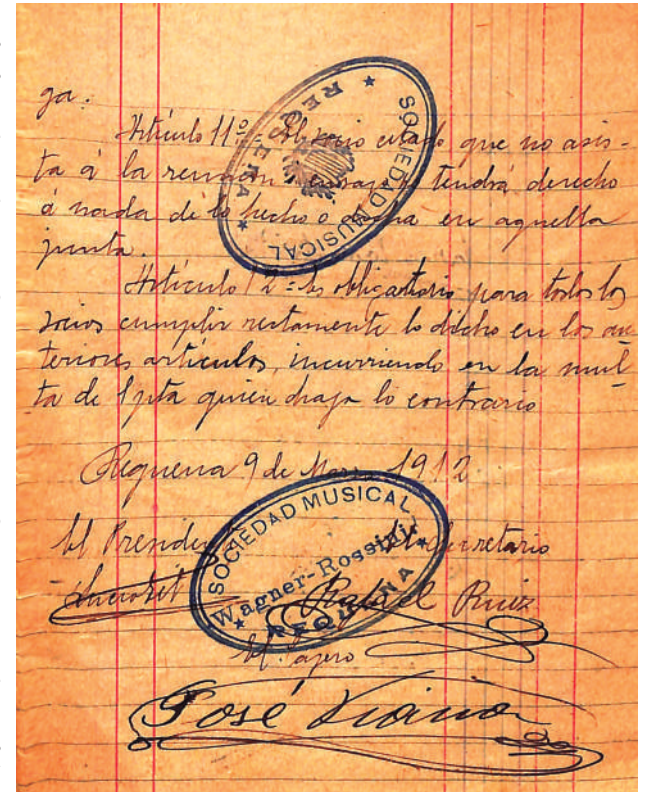 ga.
Artículo 11º = Al socio citado que no asis-
ta á la reunion ensayo no tendrá derecho
á nada de lo hecho o en aquella
junta.
Artículo 12 = Es obligatorio para todos los
socios cumplir rectamente lo dicho en los an-
teriores artículos, incurriendo en la mul-
ta de 1 pta quien haga lo contrario
Requena 9 de Marzo 1912.
El Presidente El Secretario
Rafael Ruiz
José
SOCIEDAD MUSICAL
REQUENA
SOCIEDAD MUSICAL
Wagner-Rossini
REQUENA